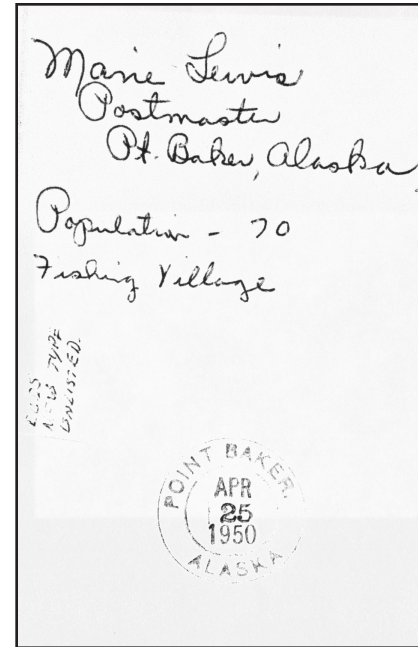 Marie Lewis
Postmaster
Pt. Baker, Alaska
Population - 70
Fishing Village
NEW TYPE
UNLISTED.
POINT BAKER,
APR
25
1950
ALASKA